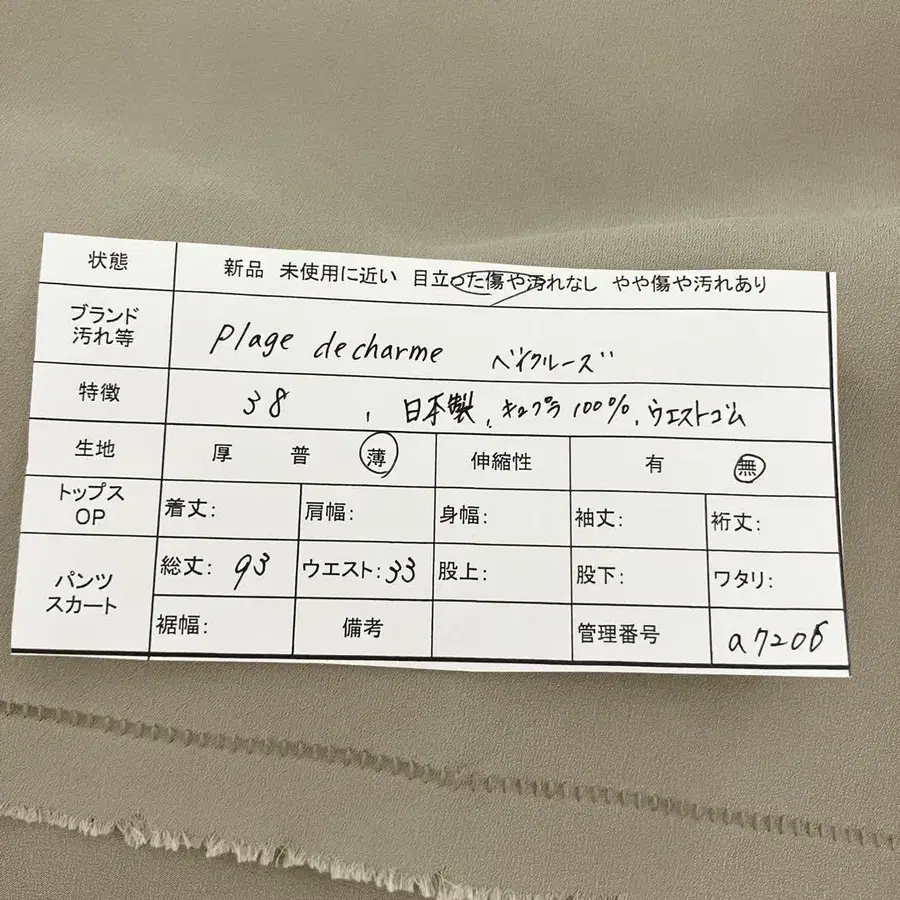 状態 新品 未使用に近い 目立った傷や汚れなし やや傷や汚れあり
ブランド
汚れ等 plage de charme ベイクルーズ
特徴 38 , 日本製, キュプラ 100%, ウエストゴム
生地 厚 普 薄 伸縮性 有 無
トップス
OP 着丈: 肩幅: 身幅: 袖丈: 裄丈:
パンツ
スカート 総丈: 93 ウエスト: 33 股上: 股下: ワタリ:
裾幅: 備考 管理番号 a7206